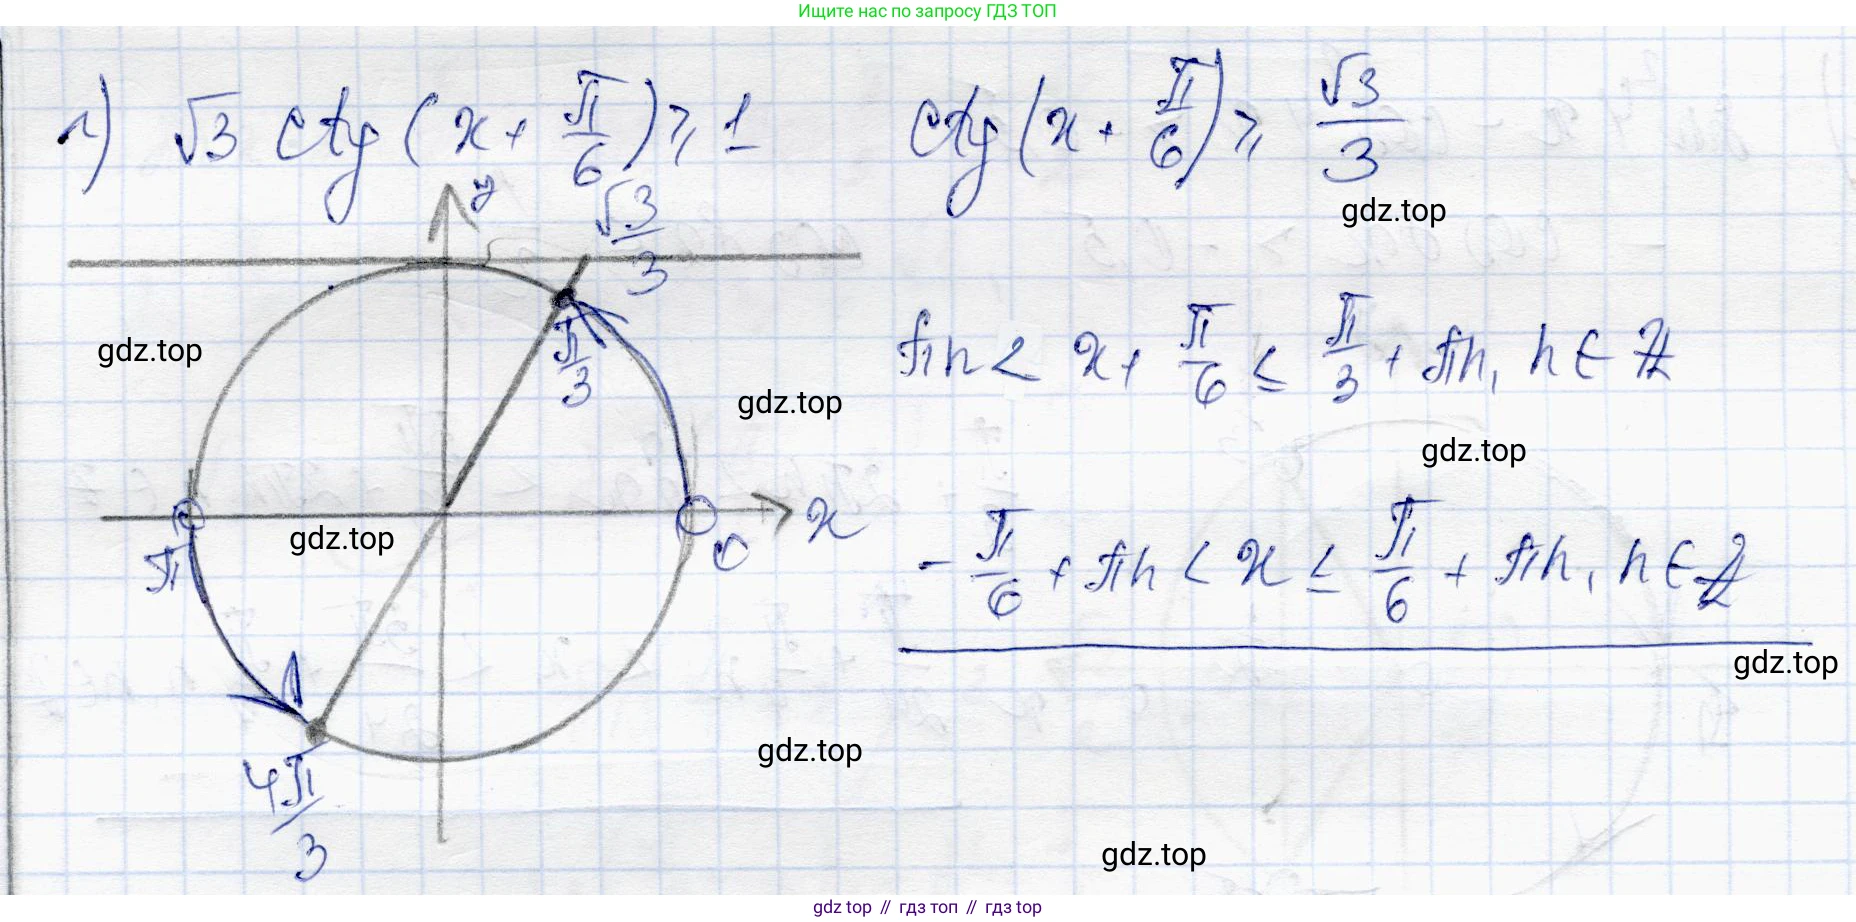 Ищите нас по запросу ГДЗ ТОП
г) √3 ctg (x + π/6) ≥ 1
ctg (x + π/6) ≥ √3/3
gdz.top
y
√3/3
π/3
gdz.top
πn < x + π/6 ≤ π/3 + πn, n ∈ Z
gdz.top
gdz.top
x
0
π
gdz.top
-π/6 + πn < x ≤ π/6 + πn, n ∈ Z
gdz.top
4π/3
gdz.top
gdz.top
gdz top // гдз топ // gdz top